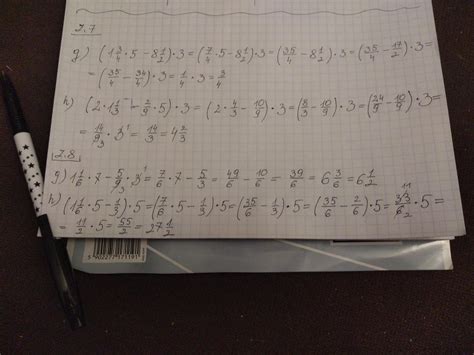 2.7
g) (1 3/4 · 5 - 8 1/2) · 3 = (7/4 · 5 - 8 1/2) · 3 = (35/4 - 8 1/2) · 3 = (35/4 - 17/2) · 3 =
= (35/4 - 34/4) · 3 = 1/4 · 3 = 3/4
h) (2 · 1 1/3 - 2/9 · 5) · 3 = (2 · 4/3 - 10/9) · 3 = (8/3 - 10/9) · 3 = (24/9 - 10/9) · 3 =
= 14/9 3 · 3 1 = 14/3 = 4 2/3
2.8
g) 1 1/6 · 7 - 5/9 3 · 3 1 = 7/6 · 7 - 5/3 = 49/6 - 10/6 = 39/6 = 6 3/6 = 6 1/2
h) (1 1/6 · 5 - 1/3) · 5 = (7/6 · 5 - 1/3) · 5 = (35/6 - 1/3) · 5 = (35/6 - 2/6) · 5 = 33 11/6 2 · 5 =
= 11/2 · 5 = 55/2 = 27 1/2
5 902277 173191